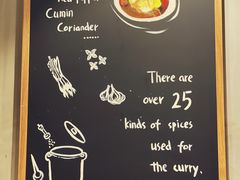 Cumin
Coriander
There are
over 25
kinds of spices
used for
the curry.